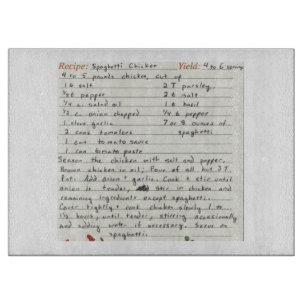 Recipe: Spaghetti Chicken Yield: 4 to 6 servings
4 to 5 pounds chicken, cut up
1 t salt 2 T parsley,
1/8 t pepper 2 t salt
1/4 c. salad oil 1 t basil
1/2 c. onion chopped 1/4 t pepper
1 clove garlic 7 or 8 ounces of
2 cans tomatoes spaghetti
1 can tomato sauce
1 can tomato paste
Season the chicken with salt and pepper.
Brown chicken in oil; Pour off all but 3 T
Fat. Add onion + garlic. Cook + stir until
onion is tender, stir in chicken and
remaining ingredients except spaghetti.
Cover tightly + cook chicken slowly 1 to
1½ hours, until tender, stirring occasionally
and adding water if necessary. Serve on
spaghetti.